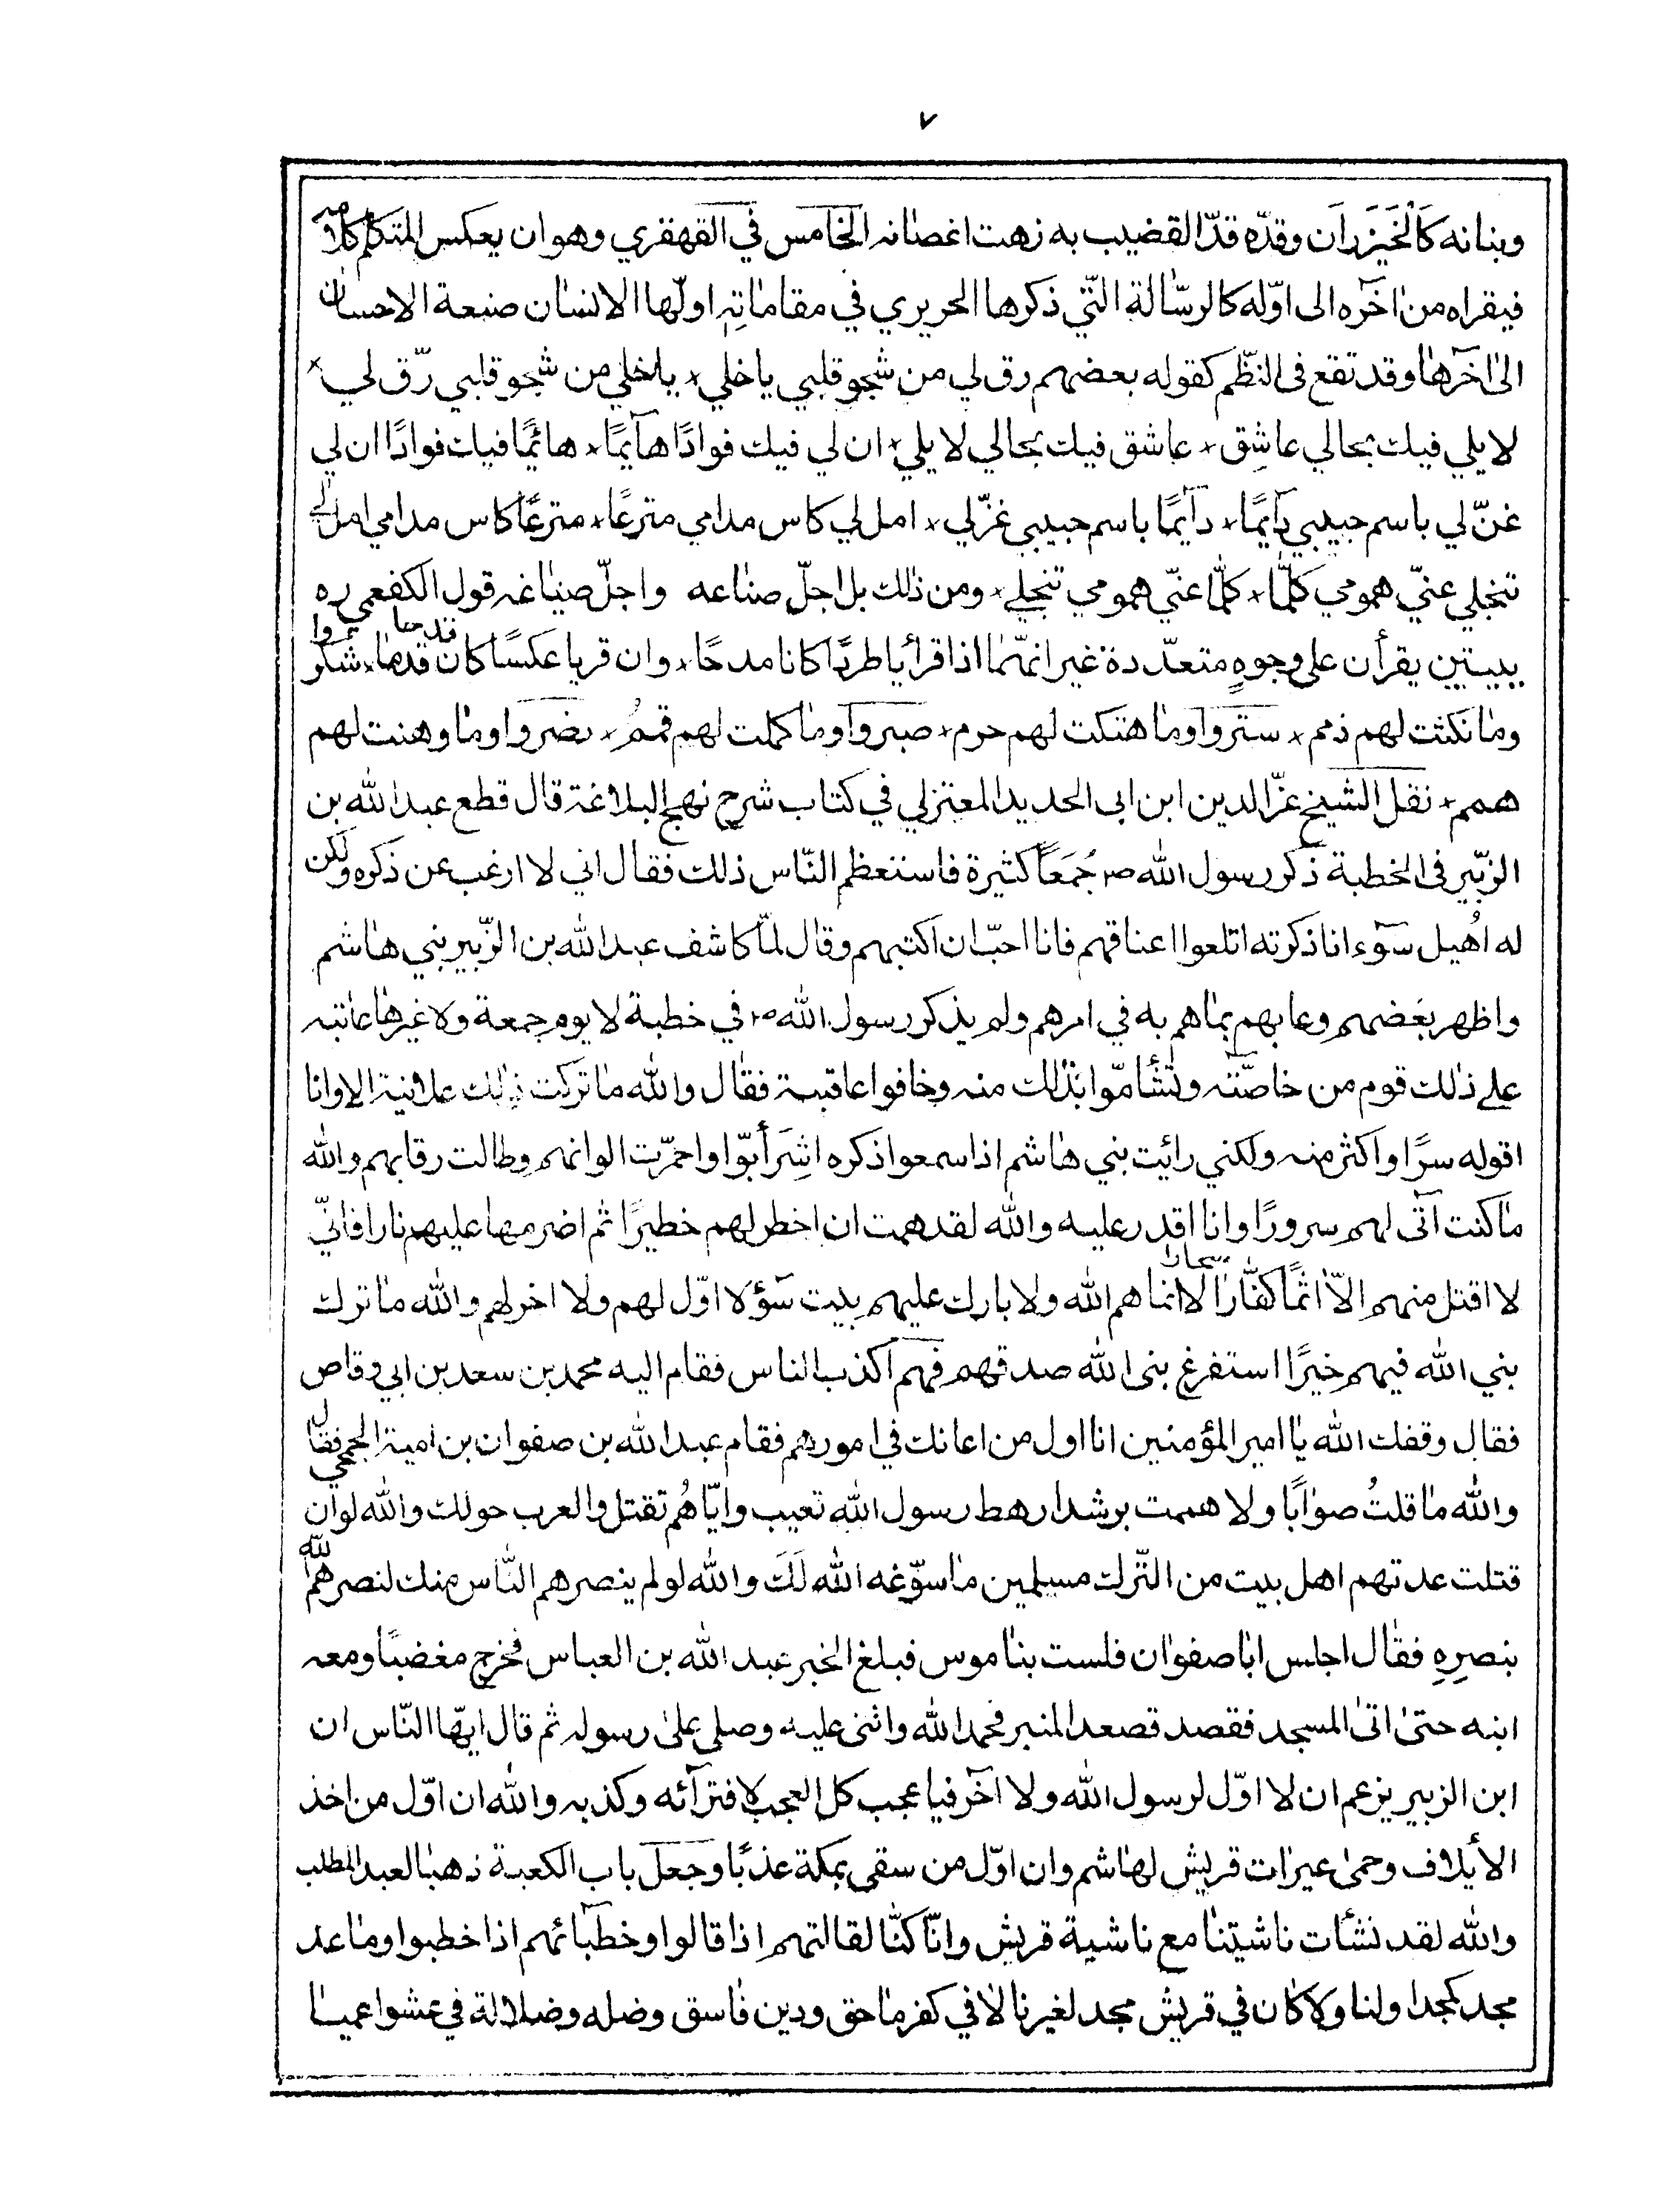 ٧
وبنانه كَالْخَيَزَرانَ وقدّه قدّ القضيب به زهت اغصانه الخامس في القهقري وهو ان يعكس المتكلم كلامه
فيقراه من اخره الى اوّله كالرسالة التّي ذكرها الحريري في مقاماتهِ اولّها الانسان صنيعة الاحسان
الى اخرها وقد تقع فى النظّم كقوله بعضهم رق لي من شجو قلبي ياخلي × ياخلي من شجو قلبي رّق لي ×
لا يلي فيك بحالي عاشِق × عاشق فيك بحالي لا يلي × ان لي فيك فوادًا هآيمًا × هائمًا فيك فوادًا ان لي
غنّ لي باسم حبيبي دآيمًا × دآيمًا باسم حبيبي غنّ لي × امل لي كاس مدامي مترعًا × مترعًا كاس مدامي امل لي
تنجلي عنيّ همومي كلّما × كلّما عنّي همومي تنجلي × ومن ذلك بل اجلّ صناعه واجلّ صياغه قول الكفعمي ره
ببيتين يقرأن على وجوهٍ متعدّدة غير انهّما اذا قرأيا طردًا كانا مدحًا × وان قريا عكسًا كان قدما قدحا × شكروا
وما نكثت لهم ذمم × ستروا وما هتكت لهم حرم × صبروا وما كلمت لهم قممُ × نضروا وما وهنت لهم
همم × نقل الشيخ عزّ الدين ابن ابى الحديد المعتزلي في كتاب شرح نهج البلاغة قال قطع عبد الله بن
الزّبير فى الخطبة ذكر رسول الله ص جُمَعًا كثيرة فاستعظم النّاس ذلك فقال اني لا ارغب عن ذكره ولكن
له اُهيل سوٓء انا ذكرته اتلعوا اعناقهم فانا احبّ ان اكتبهم وقال لمّا كاشف عبد الله بن الزّبير بني هاشم
واظهر بغضهم وعابهم بما هم به في امرهم ولم يذكر رسول الله ص في خطبة لا يوم جمعة ولا غيرها عاتبه
على ذلك قوم من خاصّته وتشأمّوا بذلك منه وخافوا عاقبة فقال والله ما تركت ذلك علانية الا وانا
اقوله سرًا واكثر منه ولكني رائيت بني هاشم اذا سمعوا ذكره اشِرَأبّوا واحمرّت الوانهم وطالت رقابهم والله
ما كنت آتى لهم سرورًا وانا اقدر عليه والله لقد هممت ان اخطر لهم خطيرًا ثم اضرمها عليهم نارا فانيّ
لا اقتل منهم الاّ اثمًا كفّارا سحارا لا انما هم الله ولا بارك عليهم بيت سوٓء لا اوّل لهم ولا اخر لهم والله ما ترك
بني الله فيهم خيرًا استفرغ بنى الله صدقهم فهم اكذب الناس فقام اليه محمد بن سعد بن ابي وقاص
فقال وقفك الله يا امير المؤمنين انا اول من اعانك في امورهم فقام عبد الله بن صفوان بن امية الجمحي فقال
والله ما قلتُ صوابًا ولا هممت برشد ارهط رسول الله تعيب وايّاهُم تقتل والعرب حولك والله لو ان
قتلت عدتهم اهل بيت من التّرك مسلمين ما سوّغه الله لَكَ والله لو لم ينصرهم النّاس منك لنصرهم الله
بنصرِهِ فقال اجلس ابا صفوان فلست بناموس فبلغ الخبر عبد الله بن العباس فخرج مغضبًا ومعه
ابنه حتى اتى المسجد فقصد قصعد المنبر فحمد الله واثنى عليه وصلى على رسوله ثم قال ايهّا النّاس ان
ابن الزبير يزعم ان لا اوّل لرسول الله ولا آخر فيا عجب كل العجب لافترآئه وكذبه والله ان اوّل من اخذ
الأيلاف وحمى عيرات قريش لهاشم وان اوّل من سقى بمكة عذبًا وجعل باب الكعبة ذهبا لعبد المطلب
والله لقد نشأت ناشيتنا مع ناشية قريش وانّا كنّا لقالتهم اذا قالوا وخطبائهم اذا خطبوا وما عد
مجد كمجد اولنا ولا كان في قريش مجد لغيرنا لا في كفر ماحق ودين فاسق وضله وضلالة في عشوا عميا